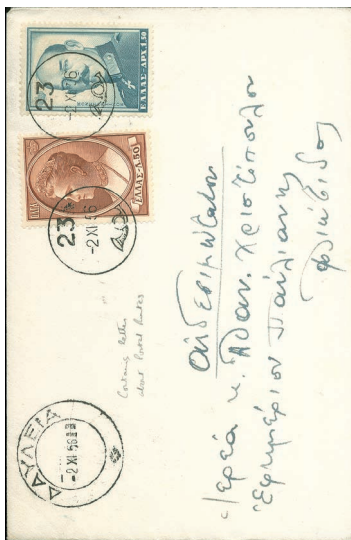 ΕΛΛΑΣ-ΔΡΧ.1.50
23
-2 XI 56
ΕΛΛΑΣ-Λ.50
23
-2 XI 56
Contains letter
about Postal Routes
ΔΑΥΛΕΙΑ
-2 XI 56
Αἰδεσιμώτατον
Ἱερέα κ. Ἀθαν. Χριστόπουλον
Ἐφημέριον Παύλιανης
Φθιώτιδος